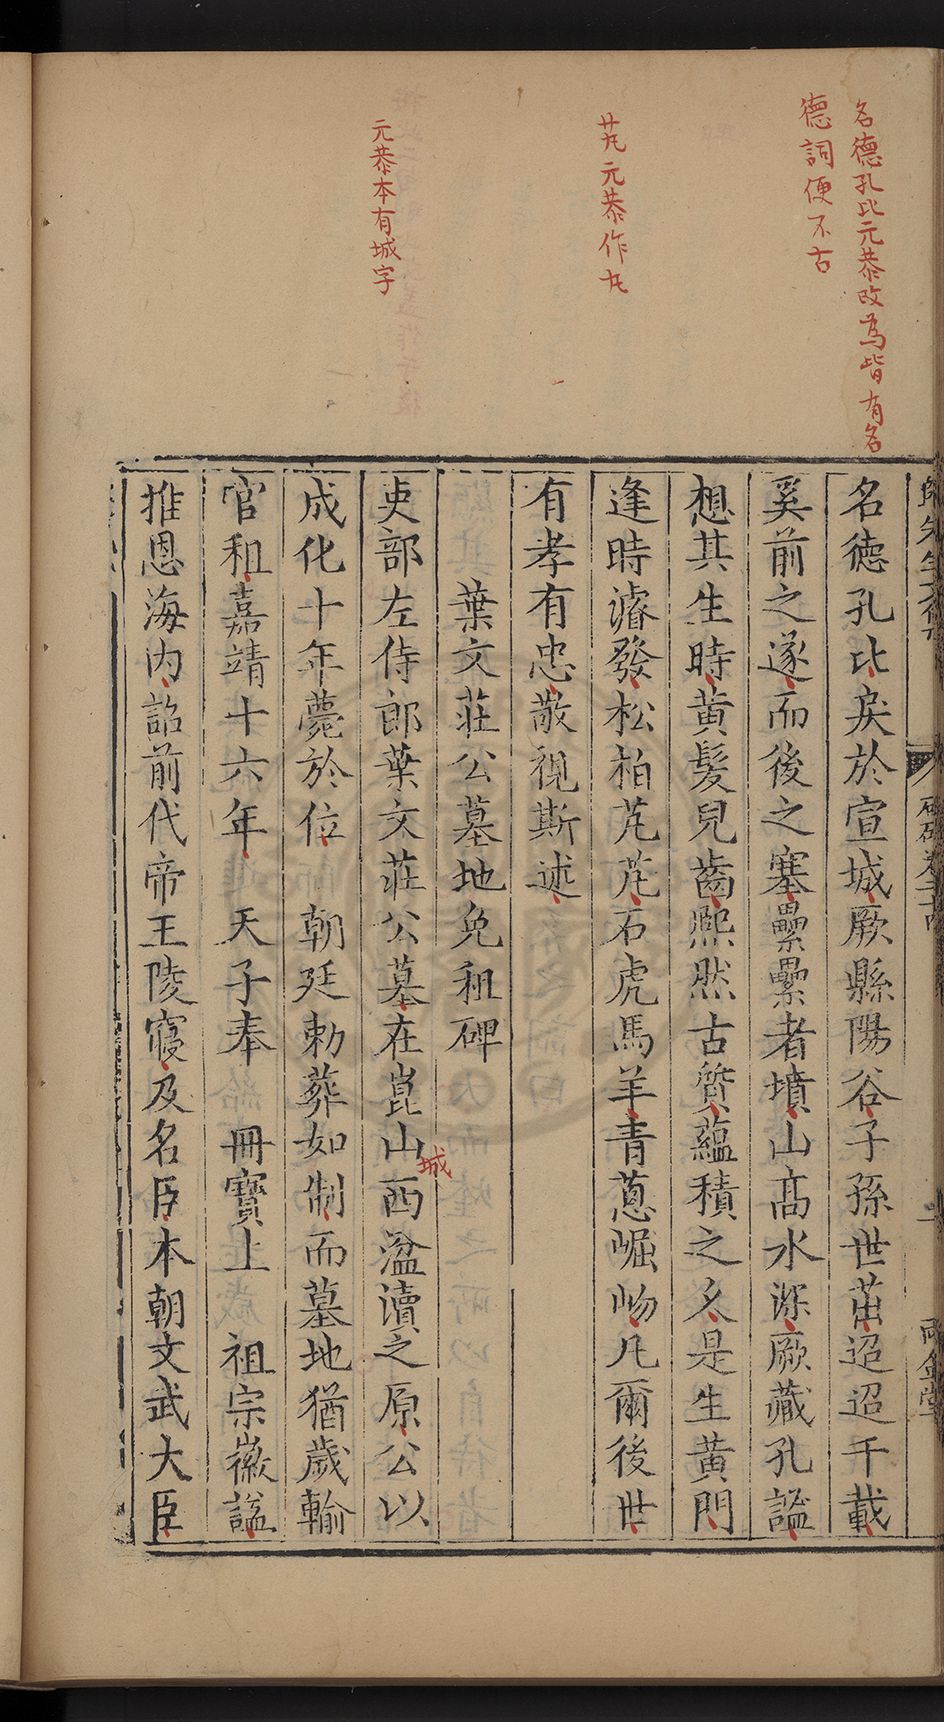 名德孔比元恭改為皆有名
德詞便不古
芃元恭作芃
元恭本有城字
名德孔比庡於宣城厥縣陽谷子孫世茁迢迢千載
奚前之遂而後之塞纍纍者墳山高水深厥藏孔謐
想其生時黃髮兒齒熙然古質蘊積之久是生黃門
逢時濬發松柏芃芃石虎馬羊青蔥崛岉凡爾後世
有孝有忠敬視斯述
葉文莊公墓地免租碑
吏部左侍郎葉文莊公墓在崑山西湓瀆之原公以
城
成化十年薨於位 朝廷勅葬如制而墓地猶歲輸
官租嘉靖十六年 天子奉 冊寶上 祖宗徽謚
推恩海內詔前代帝王陵寢及名臣本朝文武大臣